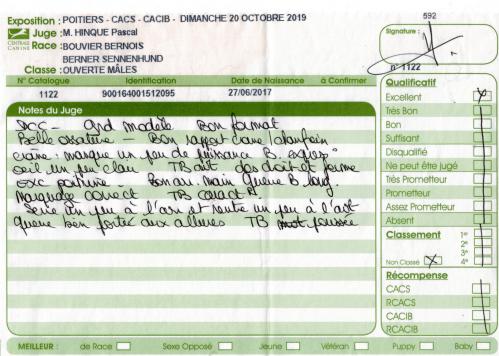 592
Exposition : POITIERS - CACS - CACIB - DIMANCHE 20 OCTOBRE 2019
Signature :
CENTRALE CANINE
Juge : M. HINQUE Pascal
Race : BOUVIER BERNOIS
BERNER SENNENHUND
Classe : OUVERTE MÂLES
n° 1122
N° Catalogue Identification Date de Naissance à Confirmer
1122 900164001512095 27/06/2017
Notes du Juge
Grd modèle Bon format
Belle ossature - Bon rapport crane / chanfrein
crane : manque un peu de puissance B.
oeil un peu clair TB att. dos droit et ferme
exc poitrine - Bon av. main queue B long.
Marquage correct TB caract.
Serre un peu à l'arr et rentre un peu à l'avt
queue bien portée aux allures TB
Qualificatif
Excellent X
Très Bon
Bon
Suffisant
Disqualifié
Ne peut être jugé
Très Prometteur
Prometteur
Assez Prometteur
Absent
Classement 1er
2e
3e
Non Classé X 4e
Récompense
CACS
RCACS
CACIB
RCACIB
MEILLEUR : de Race Sexe Opposé Jeune Vétéran Puppy Baby